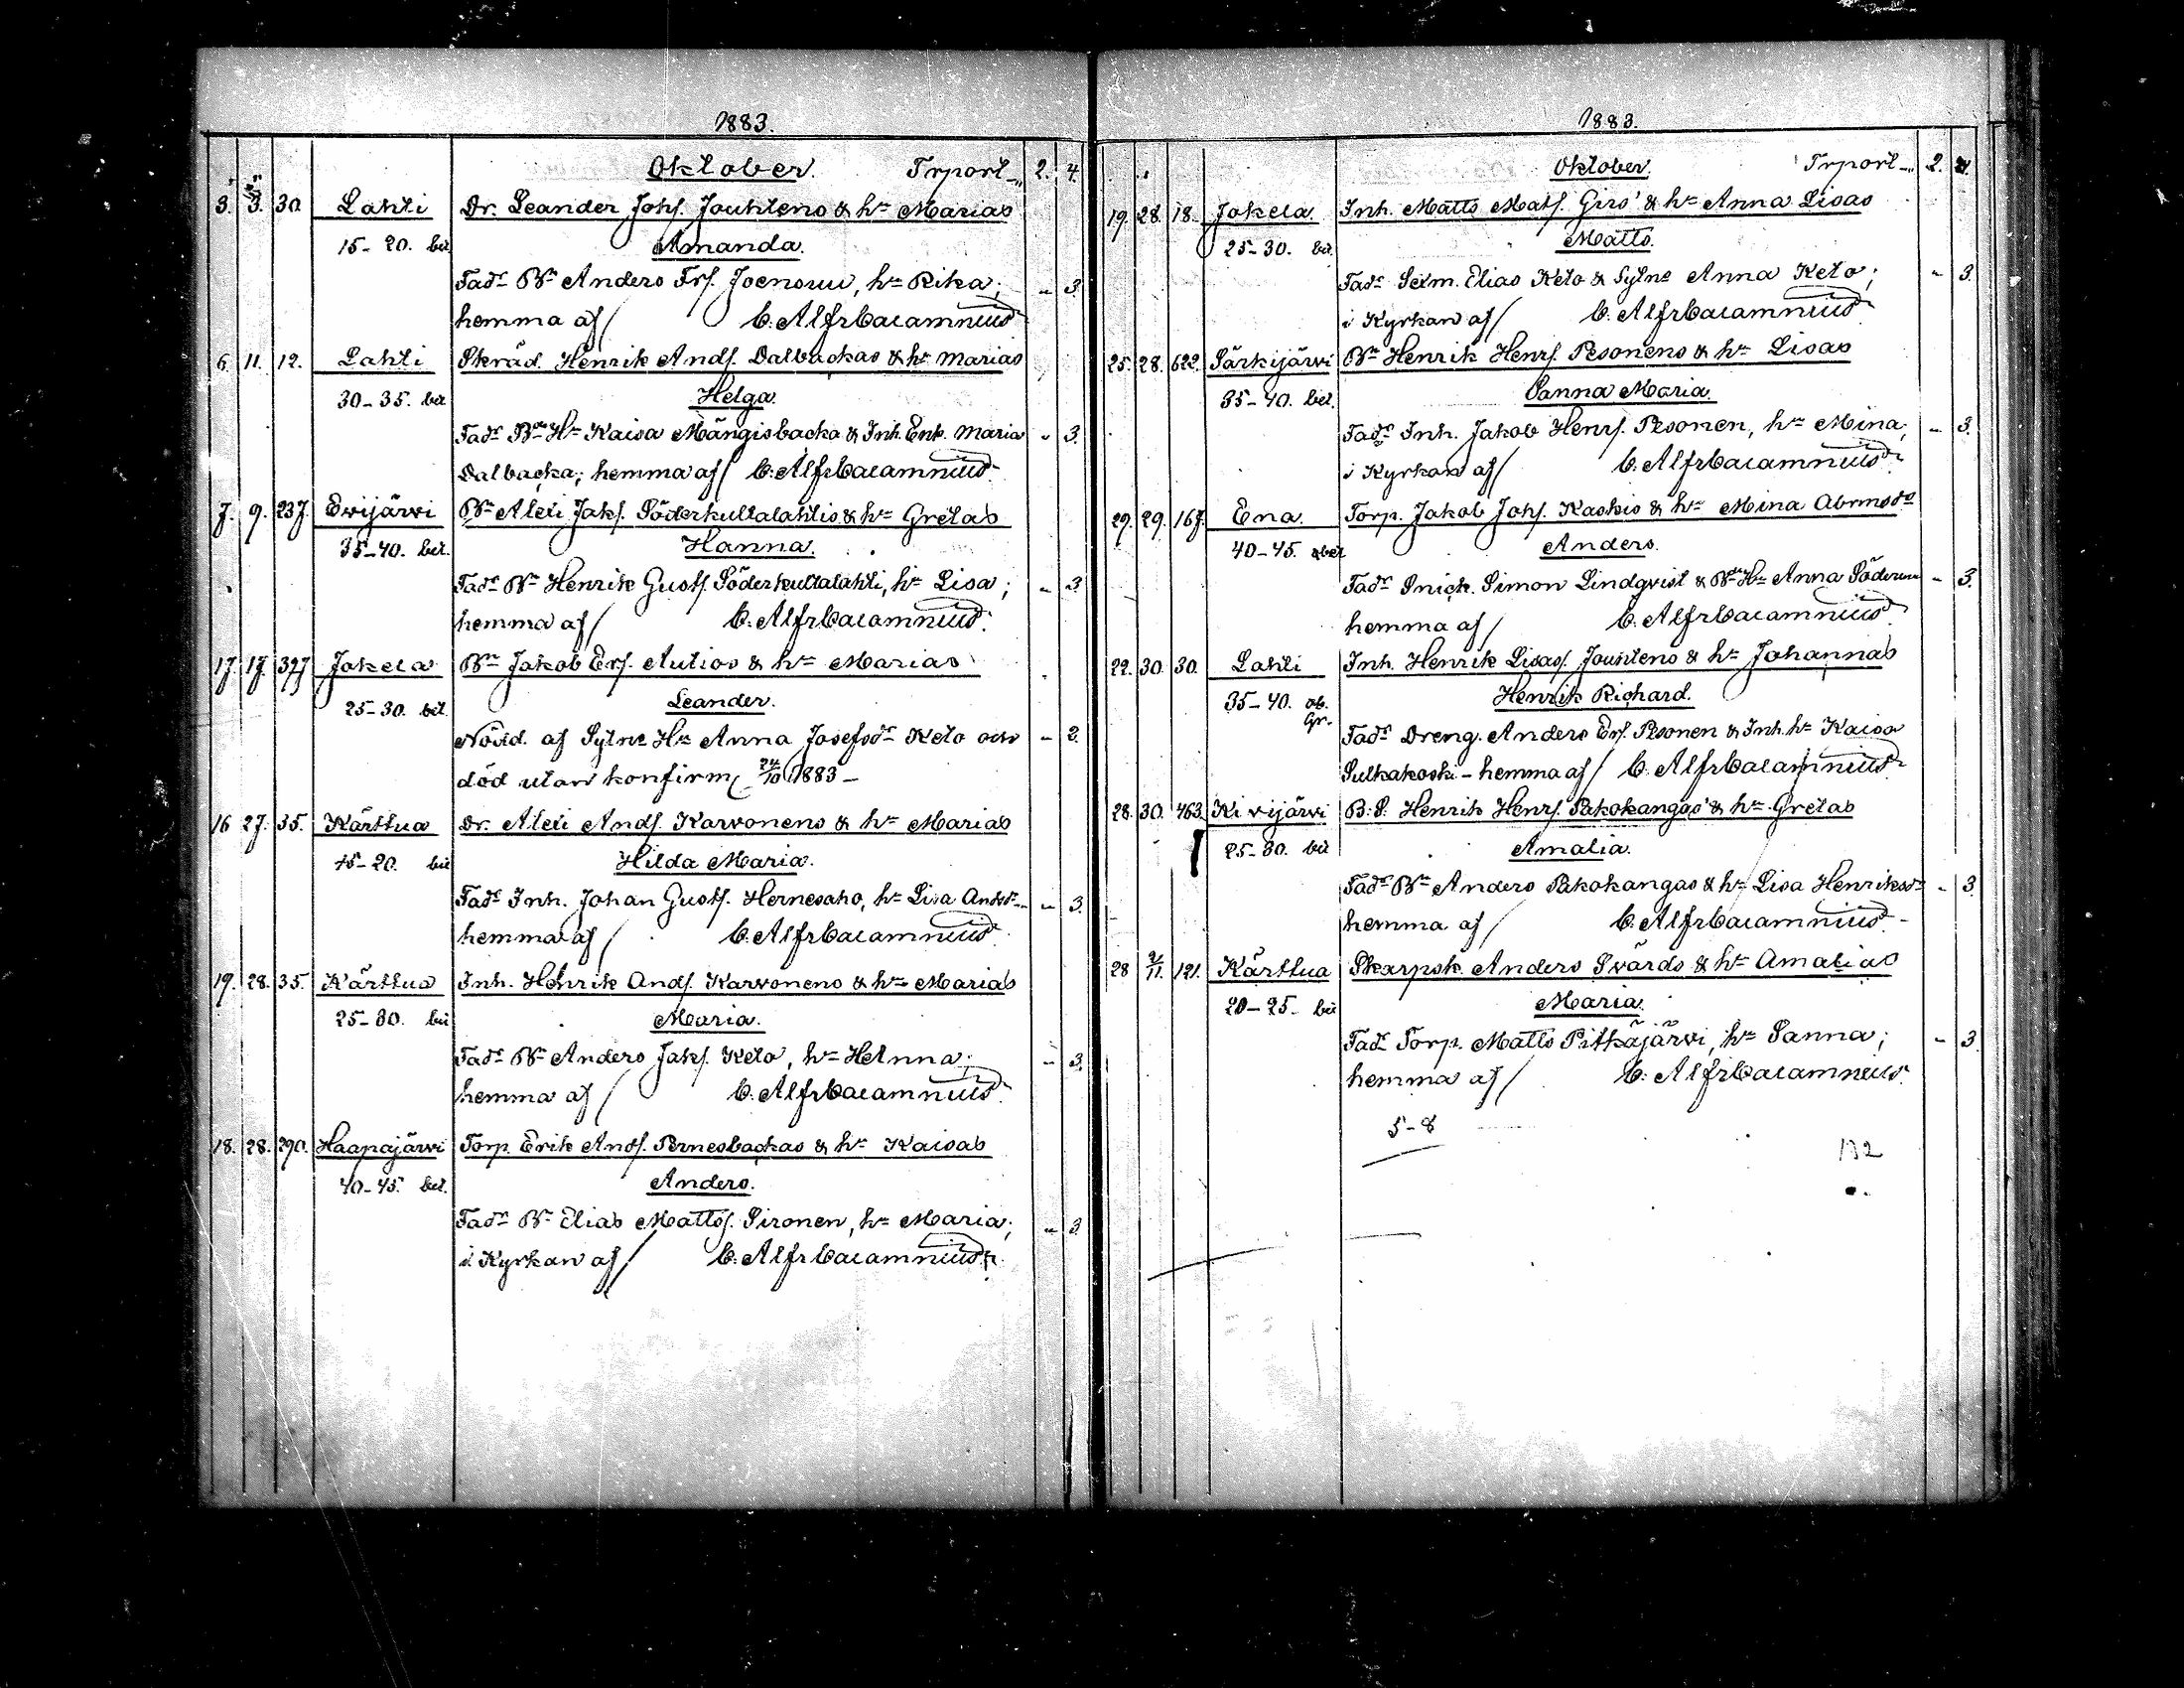 1883.
Oktober. Trport
2. 4.
3. 3. 30. Lahti Dr. Leander Johs. Jouhtens & hn Marias
15-20. bet. Amanda.
Fadr Bn Anders Ers. Joensuu, hn Rika; " 3.
hemma af / C. Alfr Calamnius
6. 11. 12. Lahti Skräd. Henrik Ands. Dalbackas & hn Marias
30-35. bet. Helga.
Fadr Bn Hn Kaisa Mängisbacka & Inh. Enk. Maria " 3.
Dalbacka; hemma af / C. Alfr Calamnius
7. 9. 237. Evijärvi Bn Alexi Jaks. Söderkultalahtis & hn Gretas
35-40. bet. Hanna.
Fadr Bn Henrik Gusts. Söderkultalahti, hn Lisa; " 3
hemma af / C. Alfr Calamnius
17. 17. 397 Jokela Bn Jakob Ers. Autios & hn Marias
25-30. bet. Leander.
Nödd. af Sytne Hn Anna Josefsdr Keto och " 3.
död utan konfirm. 24/10 1883 –
16 27. 35. Kärttua Dr. Alexi Ands. Karvonens & hn Marias
15-20. bet Hilda Maria.
Fadr Inh. Johan Gusts. Hernesaho, hn Lisa Andsdr " 3.
hemma af / C. Alfr Calamnius
19. 28. 35. Kärttua Inh. Henrik Ands. Karvonens & hn Marias
25-30. bet Maria.
Fadr Bn Anders Jaks. Keto, hn Anna; " 3.
hemma af / C. Alfr Calamnius
18. 28. 290. Haapajärvi Torp. Erik Ands. Pernesbackas & hn Kaisas
40-45. bet. Anders.
Fadr Bn Elias Mattss. Sironen, hn Maria; " 3
i Kyrkan af / C. Alfr Calamnius
1883.
Oktober. Trport
2. 4.
19. 28. 18. Jokela Inh. Matts Mats. Girs' & hn Anna Lisas
25-30. bet. Matts.
Fadr Sexm. Elias Keto & Sytne Anna Keto; " 3.
i Kyrkan af / C. Alfr Calamnius
25. 28. 622. Särkijärvi Bn Henrik Henrs. Pesonens & hn Lisas
35-40. bet. Sanna Maria.
Fadr Inh. Jakob Henrs. Pesonen, hn Mina; " 3.
i Kyrkan af / C. Alfr Calamnius
29. 29. 167. Ena. Torp. Jakob Johs. Kaskis & hn Mina Abrmsdr
40-45. obet Anders.
Fadr Snick. Simon Lindqvist & Bn Hn Anna " 3.
hemma af / C. Alfr Calamnius
22. 30. 30. Lahti Inh. Henrik Lisas. Jouhtens & hn Johannas
35-40. ob. Henrik Richard.
Gr.
Fadr Dreng. Anders Ers. Pesonen & Inh. hn Kaisa
Sulkakoski – hemma af / C. Alfr Calamnius
28. 30. 463. Kivijärvi B. S. Henrik Henrs. Pakokangas' & hn Gretas
25-30. bet Amalia.
Fadr Bn Anders Pakokangas & hn Lisa Henriksdr " 3
hemma af / C. Alfr Calamnius
28 2/11. 121. Kärttua Skarpsk. Anders Svärds & hn Amalias
20-25. bet Maria.
Fadr Torp. Matts Pitkäjärvi, hn Sanna; " 3.
hemma af / C. Alfr Calamnius
5-8
132